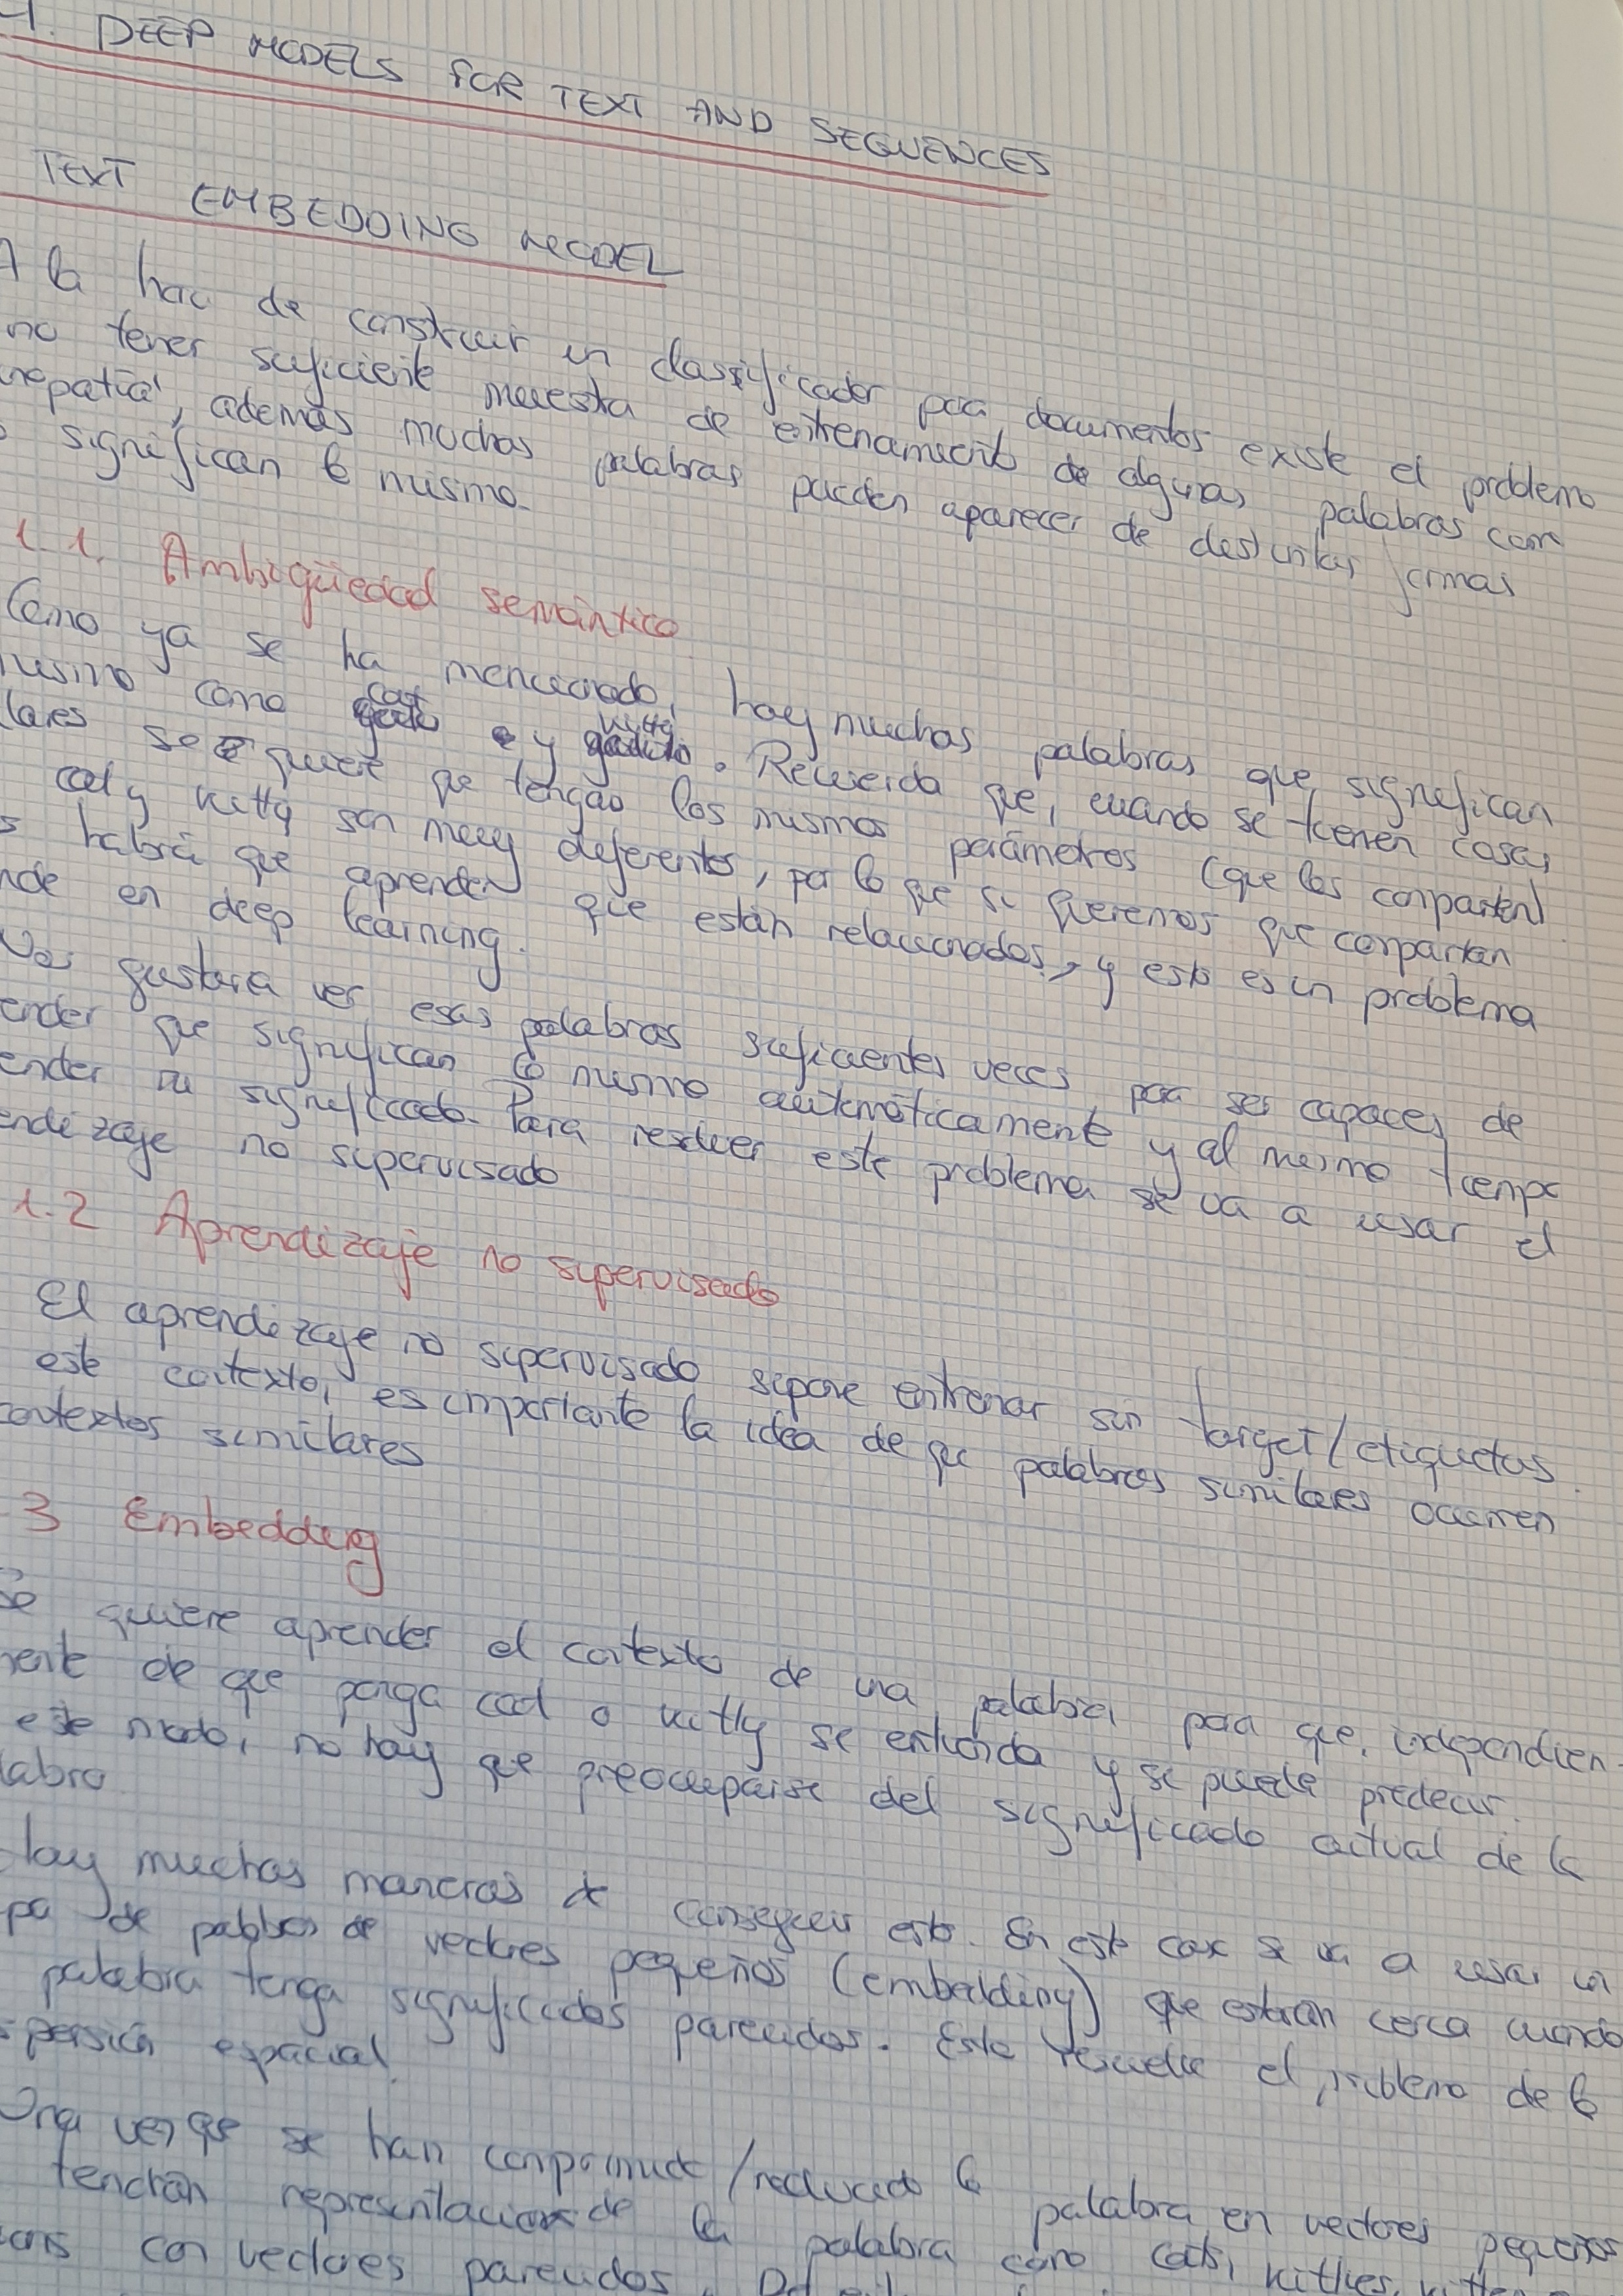 4. DEEP MODELS FOR TEXT AND SEQUENCES
TEXT EMBEDDING MODEL
A la hora de construir un classificador para documentos existe el problema
no tener suficiente muestra de entrenamiento de algunas palabras com
nepatía', además muchas palabras pueden aparecer de distintas formas
significan lo mismo.
1.1. Ambigüedad semántica
Como ya se ha mencionado, hay muchas palabras que significan
mismo como cat y kitty. Recuerda que, cuando se tienen cosas
lares se quiere que tengan los mismos parámetros (que los comparten)
cat y kitty son muy diferentes, por lo que si queremos que compartan
s habrá que aprender que están relacionados, y esto es un problema
nde en deep learning.
Nos gustaría ver esas palabras suficientes veces para ser capaces de
ender que significan lo mismo automáticamente y al mismo tiempo
ender su significado. Para resolver este problema se va a usar el
endizaje no supervisado
1.2 Aprendizaje no supervisado
El aprendizaje no supervisado supone entrenar sin target/etiquetas.
este contexto, es importante la idea de que palabras similares ocurren
contextos similares
3 Embedding
Se quiere aprender el contexto de una palabra para que, independien-
mente de que ponga cat o kitty se entienda y se puede predecir.
este modo, no hay que preocuparse del significado actual de la
labra
Hay muchas maneras de conseguir esto. En este caso se va a usar un
pa de palabras de vectores pequeños (embedding) que estarán cerca cuando
palabra tenga significados parecidos. Esto resuelve el problema de la
spersión espacial.
Una vez que se han comprimido/reducido la palabra en vectores pequeños
tendrán representaciones de la palabra como cats, kitties,
ons con vectores parecidos.